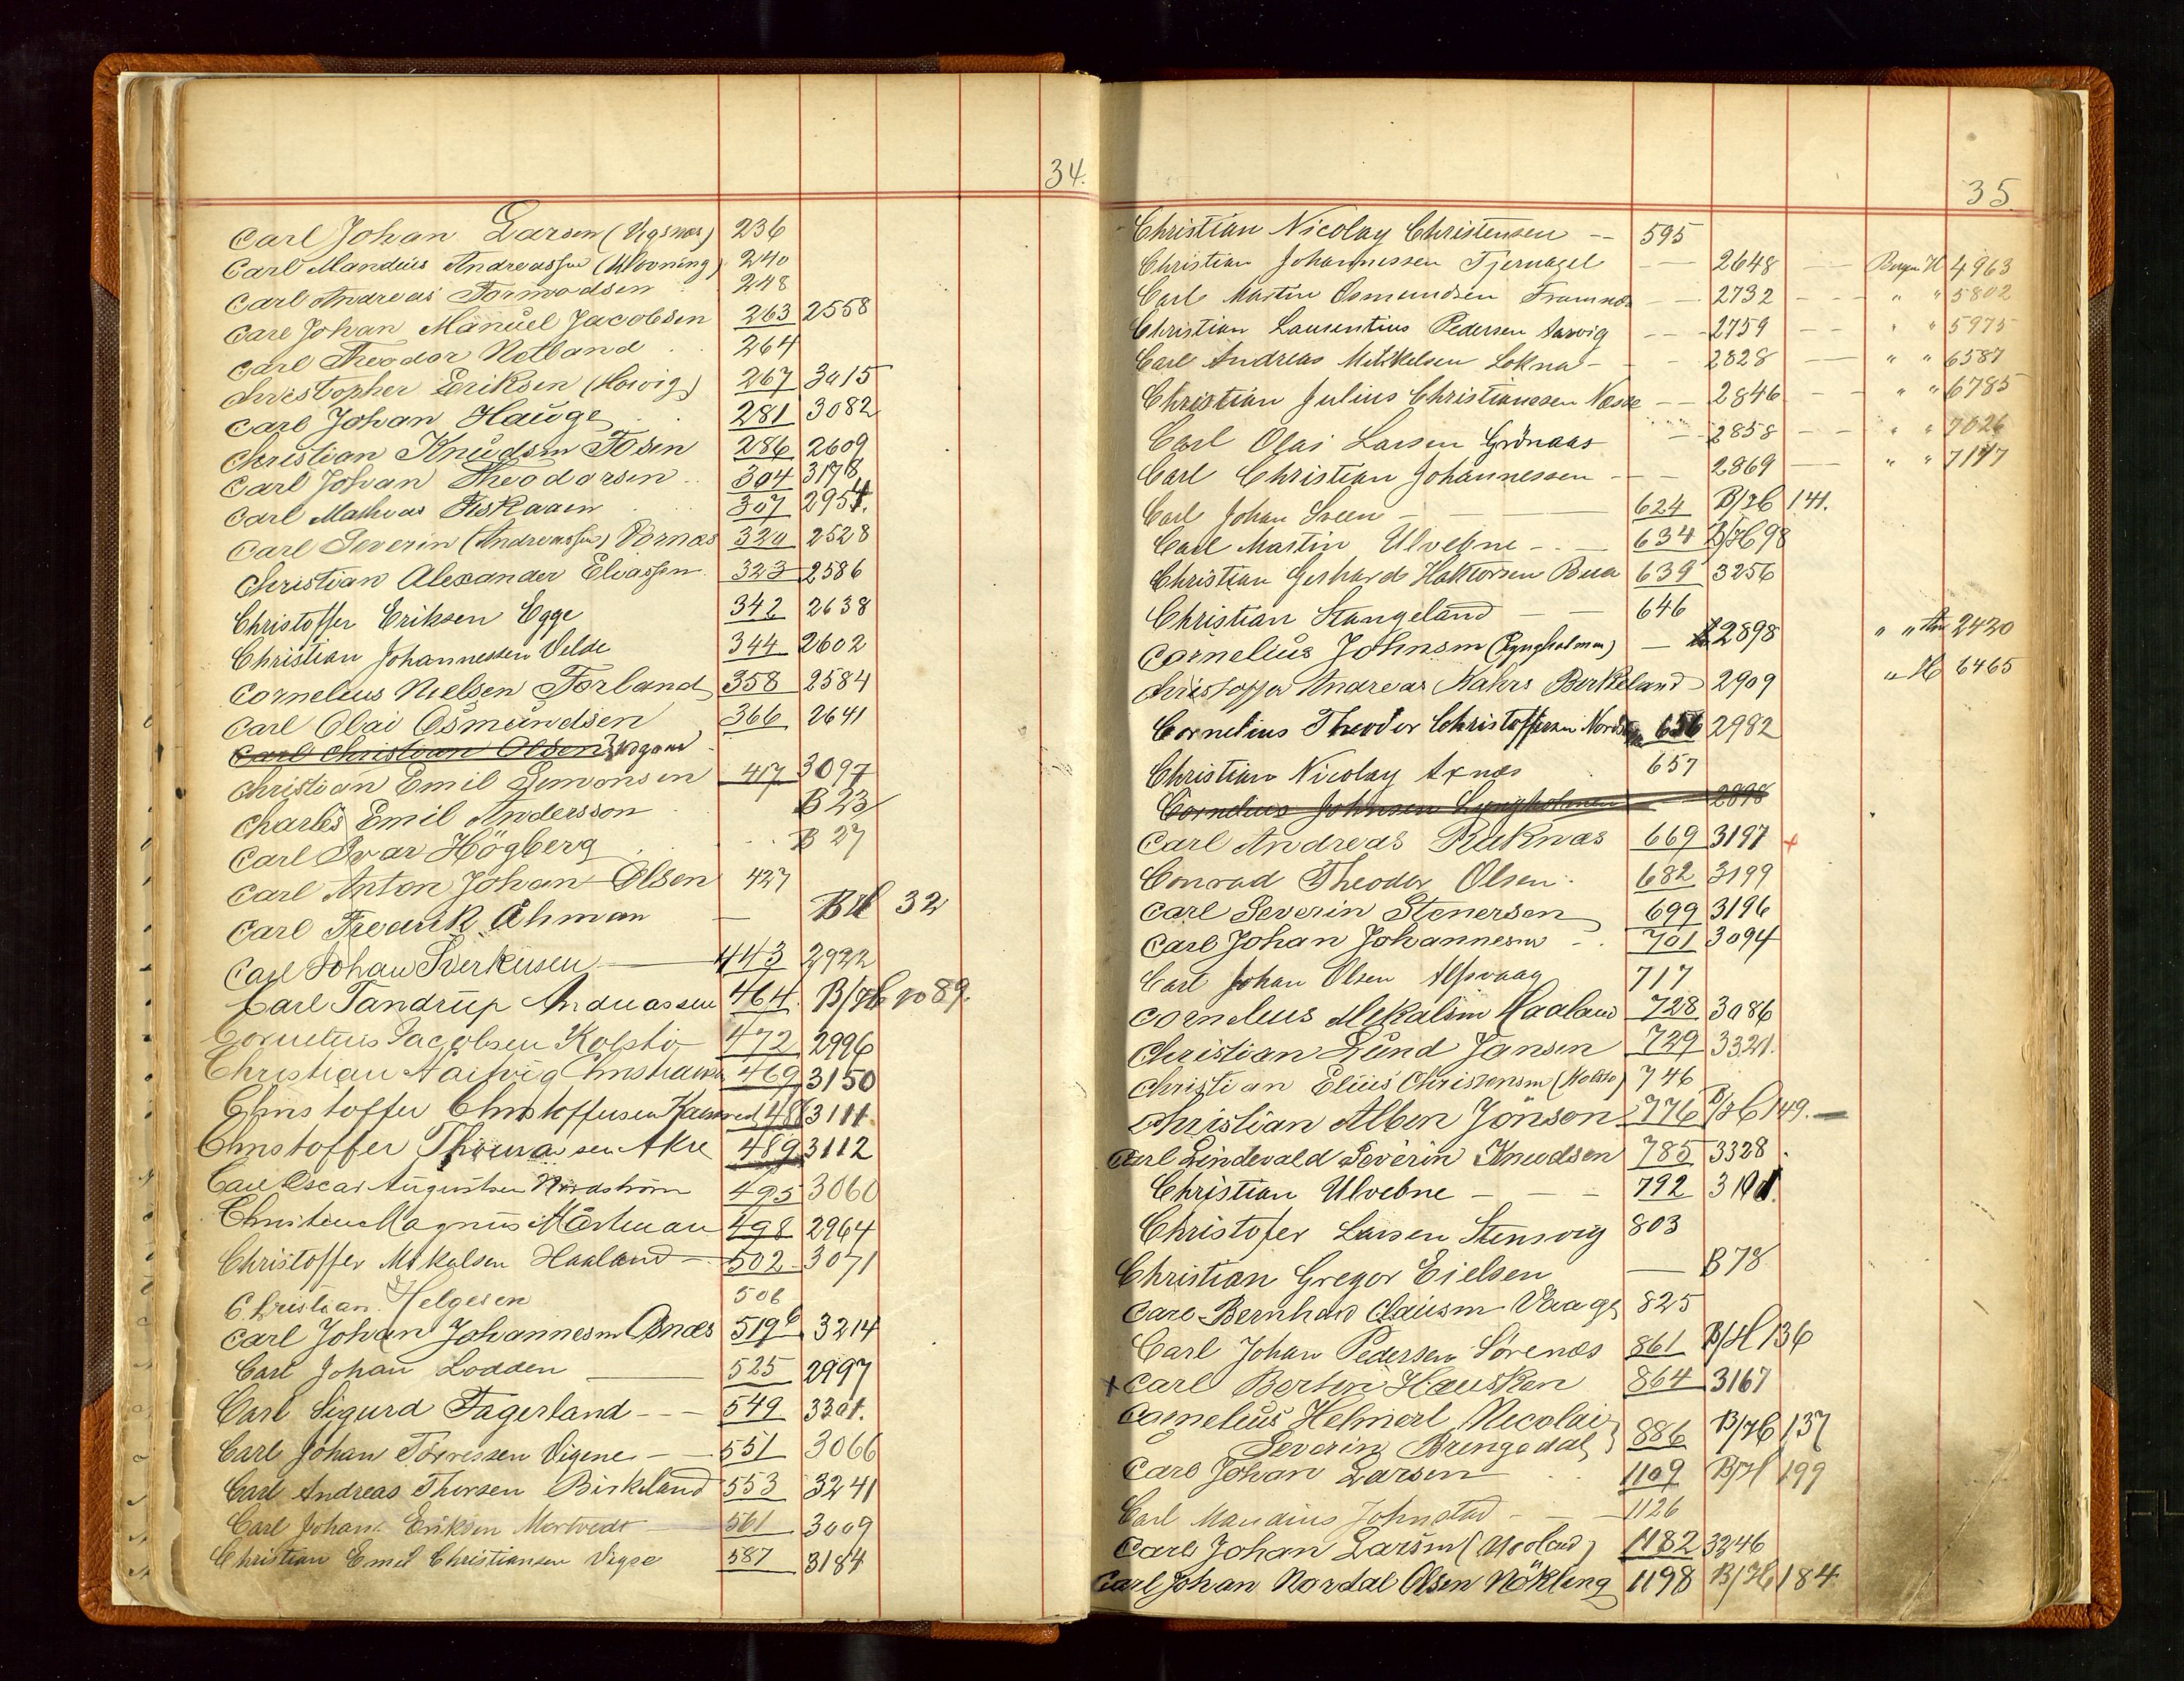 34.
Carl Johan Larsen (Ugsnæs) 236
Carl Mandius Andreassen 240
Carl Andreas Tormodsen 248
Carl Johan Manuel Jacobsen 263 2558
Carl Theodor Netland 264
Christopher Eriksen (Høivig) 267 3015
Carl Johan Hauge 281 3082
Christian Knudsen Fosen 286 2609
Carl Johan Theodorsen 304 3178
Carl Mathias Fiskaaen 307 2954.
Carl Severin (Andreassen) Vornæs 320 2528
Christian Alexander Eliassen 323 2586
Christoffer Eriksen Egge 342 2638
Christian Johannessen Velde 344 2602
Cornelius Nielsen Førland 358 2584
Carl Olai Osmundsen 366 2641
Carl Christian Olsen
Christian Emil Simonsen 417 3097
Charles Emil Andersson B 23
Carl Ivar Högberg B 27
Carl Anton Johan Olsen 427
Carl Frederik Åhman — B/H 32
Carl Johan Sverkusen 443 2922
Carl Tandrup Andreassen 464. B/H no 89.
Cornelius Jacobsen Kolstø 472 2996
Christian Aaisvig Christiansen 469 3150
Christoffer Christoffersen 486 3111.
Christoffer Thomassen Akre 489 3112
Carl Oscar Augustsen Nordstrøm 495 3060
Christian Magnus Mårtman 498 2964
Christoffer Mikalsen Haaland 502 3071
Christian Helgesen 506
Carl Johan Johannesen Osnæs 519b 3214
Carl Johan Lodden 525 2997
Carl Sigurd Fagerland 549 3301.
Carl Johan Torressen Vigene 551 3066
Carl Andreas Thorsen Birkeland 553 3241
Carl Johan Eriksen Mortvedt 561 3009
Christian Emil Christiansen Vigre 587 3184
35
Christian Nicolay Christensen — 595
Christian Johannessen Tjernagel 2648 Bergen H 4963
Carl Martin Osmundsen Framnæs 2732 " " 5802
Christian Laurentius Pedersen Aarvig 2759 " " 5975
Carl Andreas Mikkelsen Lokna 2828 " " 6587
Christian Julius Christianssen Næsse 2846 " " 6785
Carl Olai Larsen Grönaas 2858 " " 7026
Carl Christian Johannessen 2869 " " 7147
Carl Johan Sveen 624 B/H 141.
Carl Martin Ulvebne 634 B/H 98
Christian Gerhard Haktorsen Bua 639 3256
Christian Stangeland 646
Cornelius Johnsen (Lyngholmen) — 2898 " " 2420
Christoffer Andreas Nahrs Berkeland 2909 " H 6465
Cornelius Theodor Christoffersen 656 2982
Christian Nicolay Axnæs 657
Cornelius Johnsen Lyngholmen 2898
Carl Andreas Røknæs 669 3197 +
Conrad Theodor Olsen 682 3199
Carl Severin Stenersen 699 3196
Carl Johan Johannesen 701 3094
Carl Johan Olsen Alfsvaag 717
Cornelius Mikalsen Haaland 728 3086
Christian Lund Jansen 729 3321.
Christian Elius Christensen 746
Christian Alben Jönson 776 B/H 149. —
Carl Lindevald Severin Knudsen 785 3328
Christian Ulvebne 792 3101.
Christofer Larsen Stensvig 803
Christian Gregor Eielsen — B 78
Carl Bernhard Clausen Vaage 825
Carl Johan Pedersen Sørenæs 861 B/H 136
+ Carl Bertin Hausken 864 3167
Cornelius Helmert Nicolai
Severin Brengedal } 886 B/H 137
Carl Johan Larsen 1109 B/H 199
Carl Mandius Johnstad 1126
Carl Johan Larsen 1182 3246
Carl Johan Nordal Olsen Nökling 1198 B/H 184